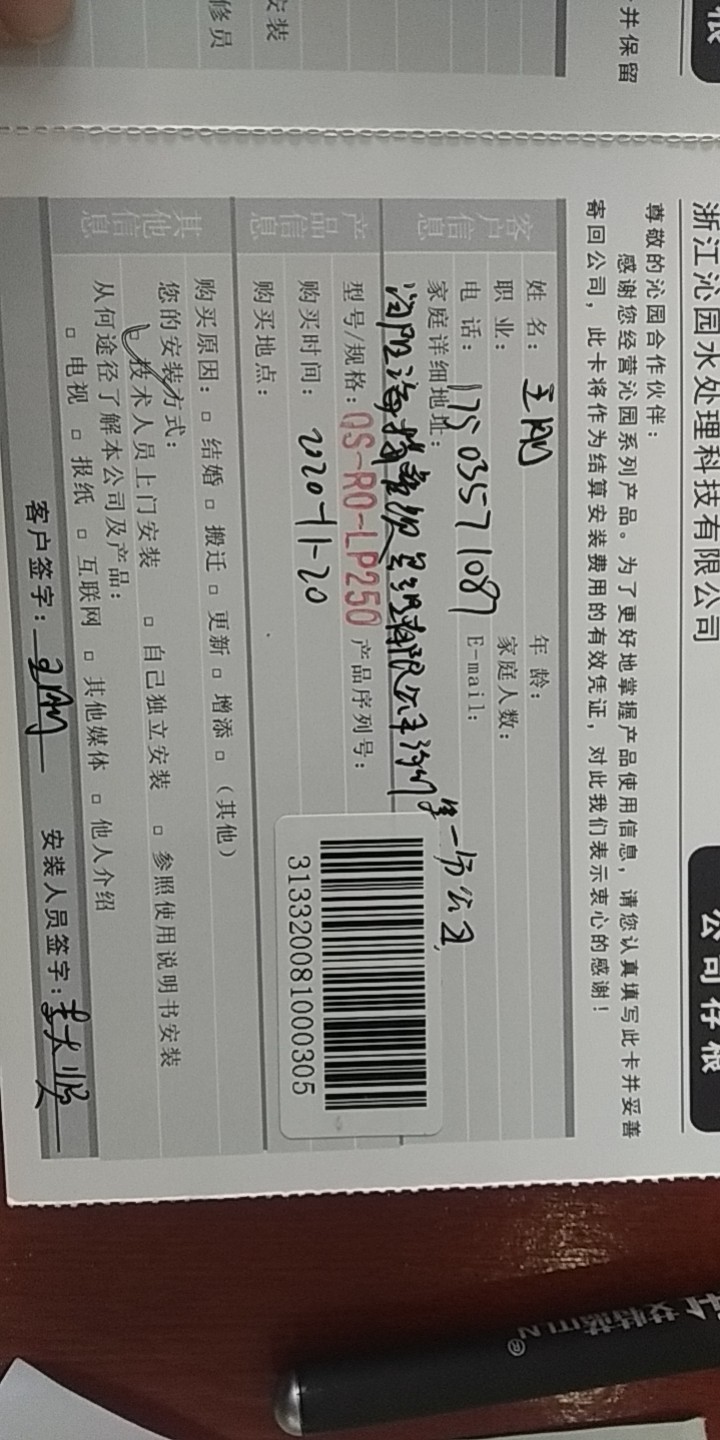 浙江沁园水处理科技有限公司
公司存根
尊敬的沁园合作伙伴：
感谢您经营沁园系列产品。为了更好地掌握产品使用信息，请您认真填写此卡并妥善
寄回公司，此卡将作为结算安装费用的有效凭证，对此我们表示衷心的感谢！
客户信息
姓 名： 年 龄：
职 业： 家庭人数：
电 话：17503571087 E-mail：
家庭详细地址：
产品信息
型号/规格：QS-RO-LP250 产品序列号：
313320081000305
购买时间：2020-11-20
购买地点：
其他信息
购买原因：□ 结婚 □ 搬迁 □ 更新 □ 增添 □ （其他）
您的安装方式：
□ 技术人员上门安装 □ 自己独立安装 □ 参照使用说明书安装
从何途径了解本公司及产品：
□ 电视 □ 报纸 □ 互联网 □ 其他媒体 □ 他人介绍
客户签字： 安装人员签字：
并保留
安装
修员